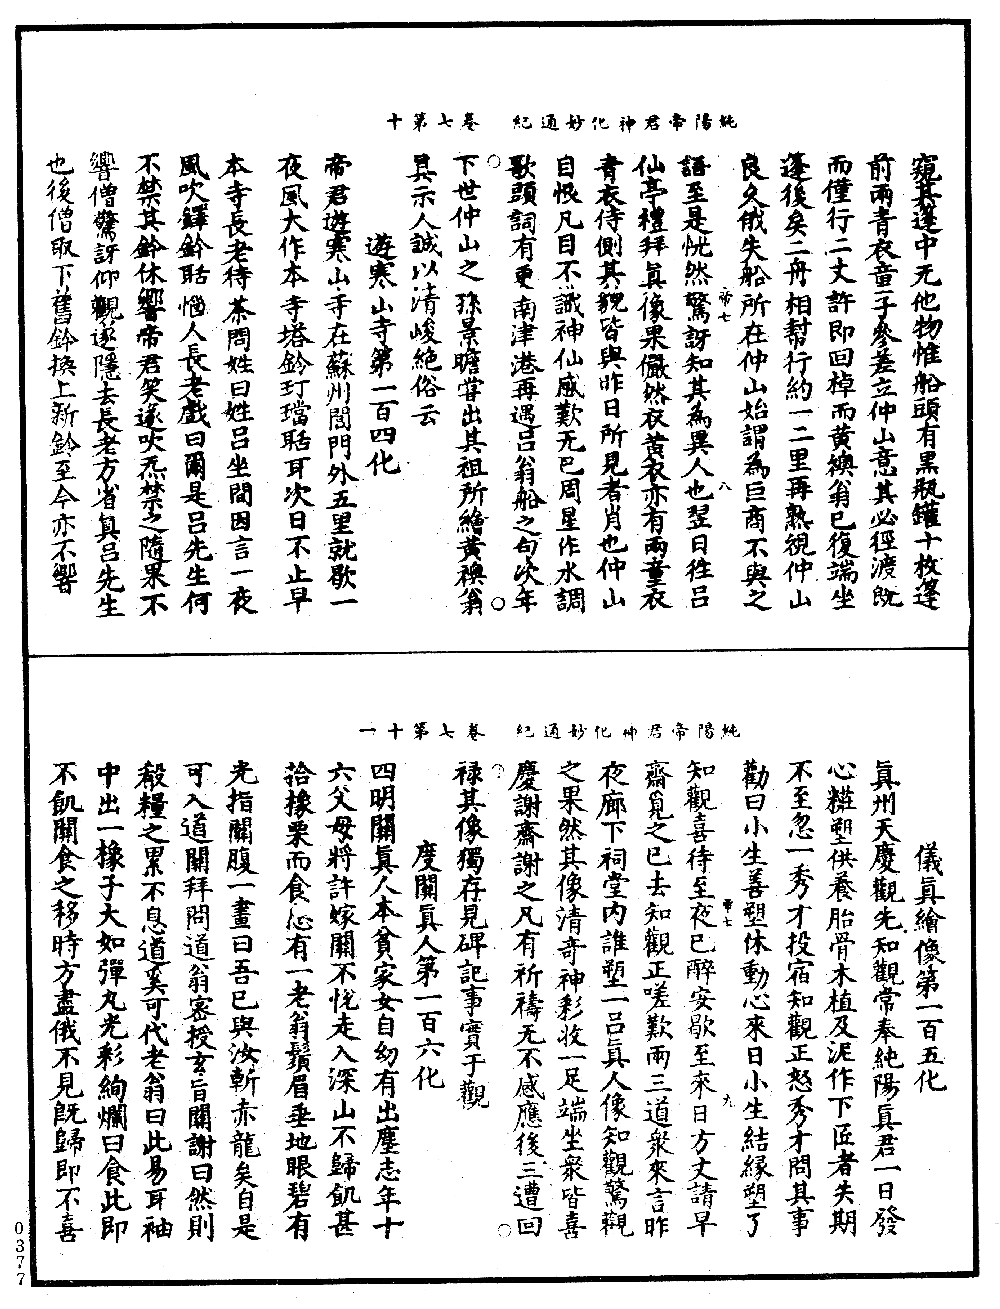 純陽帝君神化妙通紀　卷七第十
窺其篷中无他物惟船頭有黑瓶罐十枚篷
前兩青衣童子參差立仲山意其必徑渡既
而僅行二丈許即回棹而黃襖翁已復端坐
篷後矣二舟相幫行約一二里再熟視仲山
良久俄失船所在仲山始謂為巨商不與之
語至是恍然驚訝知其為異人也翌日往呂
仙亭禮拜真像果儼然衣黃衣亦有兩童衣
青衣侍側其貌皆與昨日所見者肖也仲山
自恨凡目不識神仙感歎无已周星作水調
歌頭詞有更南津港再遇呂翁船之句次年
下世仲山之孫景瞻嘗出其祖所繪黃襖翁
具示人誠以清峻絕俗云
遊寒山寺第一百四化
帝君遊寒山寺在蘇州閶門外五里就歇一
夜風大作本寺塔鈴玎璫聒耳次日不止早
本寺長老待茶問姓曰姓呂坐間因言一夜
風吹鐸鈴聒惱人長老戲曰爾是呂先生何
不禁其鈴休響帝君笑遂吹炁禁之隨果不
響僧驚訝仰觀遂隱去長老方省真呂先生
也後僧取下舊鈴換上新鈴至今亦不響
帝七
八
純陽帝君神化妙通紀　卷七第十一
儀真繪像第一百五化
真州天慶觀先知觀常奉純陽真君一日發
心糚塑供養胎骨木植及泥作下匠者失期
不至忽一秀才投宿知觀正怒秀才問其事
勸曰小生善塑休動心來日小生結緣塑了
知觀喜待至夜已醉安歇至來日方丈請早
齋覓之已去知觀正嗟歎兩三道衆來言昨
夜廊下祠堂內誰塑一呂真人像知觀驚觀
之果然其像清奇神彩收一足端坐衆皆喜
慶謝齋謝之凡有祈禱无不感應後三遭回
祿其像獨存見碑記事實于觀
度關真人第一百六化
四明關真人本貧家女自幼有出塵志年十
六父母將許嫁關不悅走入深山不歸飢甚
拾橡栗而食忽有一老翁鬚眉垂地眼碧有
光指關腹一畫曰吾已與汝斬赤龍矣自是
可入道關拜問道翁密授玄旨關謝曰然則
殺糧之累不息道奚可代老翁曰此易耳袖
中出一橡子大如彈丸光彩絢爛曰食此即
不飢關食之移時方盡俄不見既歸即不喜
帝七
九
0377